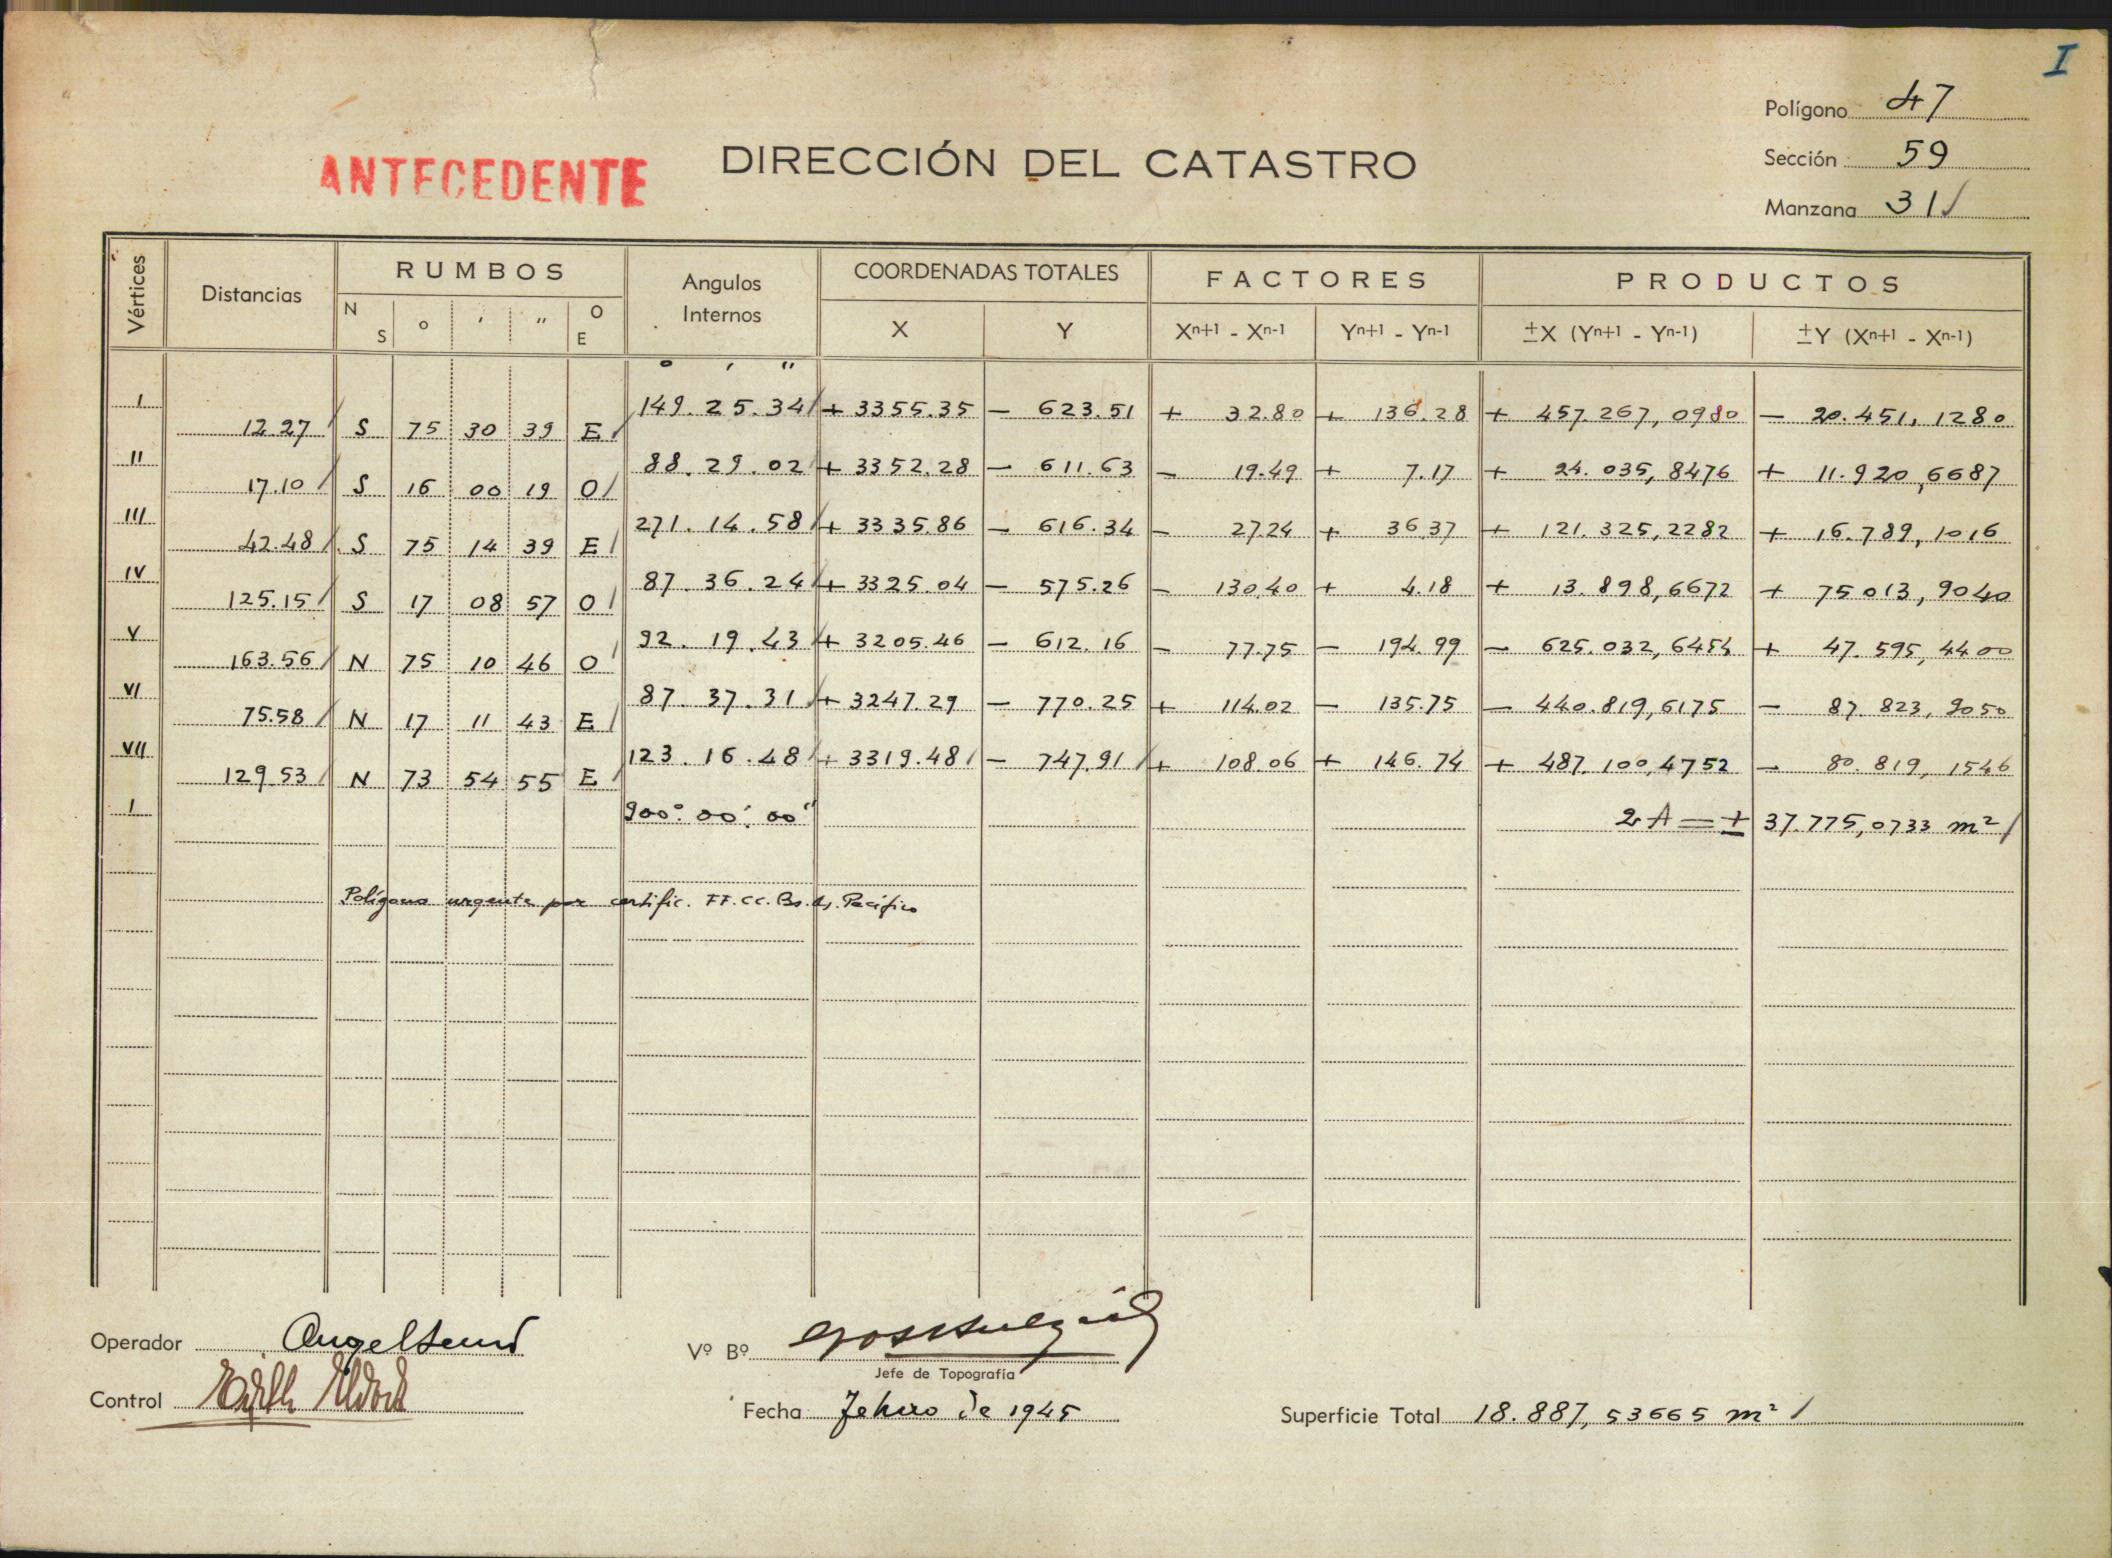 I
Polígono 47
Sección 59
Manzana 31/
ANTECEDENTE
DIRECCIÓN DEL CATASTRO
Vértices Distancias RUMBOS Angulos Internos COORDENADAS TOTALES FACTORES PRODUCTOS
N S ° ' " O E X Y Xn+1 - Xn-1 Yn+1 - Yn-1 ±X (Yn+1 - Yn-1) ±Y (Xn+1 - Xn-1)
° ' "
I 149.25.34/ + 3355.35 - 623.51 + 32.80 + 136.28 + 457.267,0980 - 20.451,1280
12.27/ S 75 30 39 E/
II 88.29.02/ + 3352.28 - 611.63 - 19.49 + 7.17 + 24.035,8476 + 11.920,6687
17.10/ S 16 00 19 O/
III 271.14.58/ + 3335.86 - 616.34 - 27.24 + 36.37 + 121.325,2282 + 16.789,1016
42.48/ S 75 14 39 E/
IV 87.36.24/ + 3325.04 - 575.26 - 130.40 + 4.18 + 13.898,6672 + 75013,9040
125.15/ S 17 08 57 O/
V 92.19.43/ + 3205.46 - 612.16 - 77.75 - 194.99 - 625.032,6454 + 47.595,4400
163.56/ N 75 10 46 O/
VI 87.37.31/ + 3247.29 - 770.25 + 114.02 - 135.75 - 440.819,6175 - 87.823,9050
75.58/ N 17 11 43 E/
VII 123.16.48/ + 3319.48/ - 747.91/ + 108.06 + 146.74 + 487.100,4752 - 80.819,1546
129.53/ N 73 54 55 E/
I 900° 00' 00" 2A = ± 37.775,0733 m²/
Polígono urgente por certific. FF.CC. Bs. As. Pacífico
Operador
Control
Vº Bº
Jefe de Topografía
Fecha Febrero de 1945
Superficie Total 18.887,53665 m²/